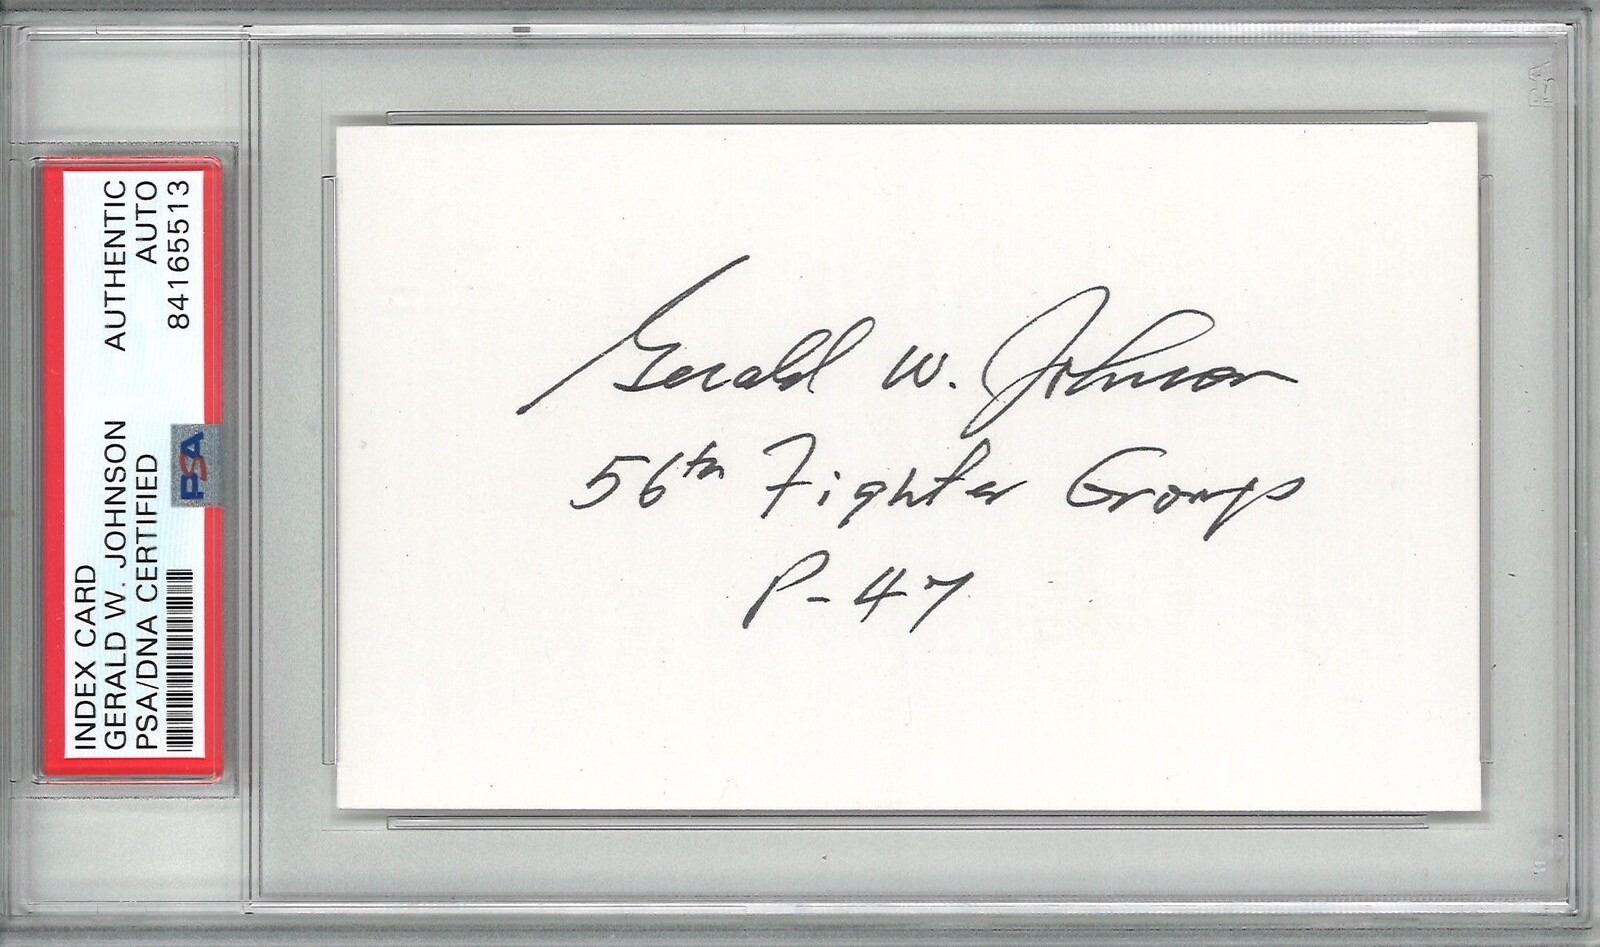 INDEX CARD
GERALD W. JOHNSON AUTHENTIC
PSA/DNA CERTIFIED AUTO
84165513
PSA
Gerald W. Johnson
56th Fighter Group
P-47